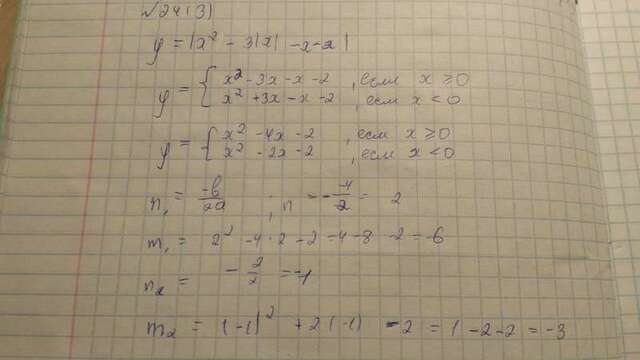 №24(3)
y = |x² - 3|x| - x - 2|
y = { x² - 3x - x - 2 , если x ≥ 0
x² + 3x - x - 2 , если x < 0
y = { x² - 4x - 2 , если x ≥ 0
x² - 2x - 2 , если x < 0
n₁ = -b/2a ; n = - -4/2 = 2
m₁ = 2² - 4·2 - 2 = 4 - 8 - 2 = -6
n₂ = - 2/2 = -1
m₂ = (-1)² + 2(-1) - 2 = 1 - 2 - 2 = -3